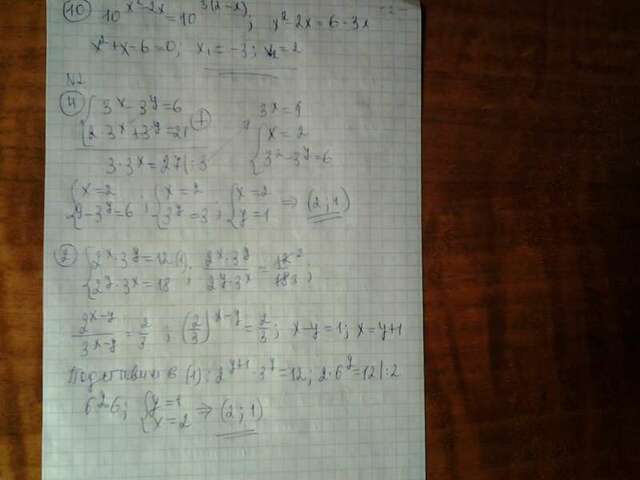 ⑩ 10^(x²-2x) = 10^(3(2-x)); x²-2x = 6-3x
x²+x-6=0; x₁=-3; x₂=2
N2
④ { 3^x - 3^y = 6
{ 2·3^x + 3^y = 21 ⊕
3·3^x = 27 |:3
3^x = 9
{ x = 2
{ 3² - 3^y = 6
{ x=2
{ 9-3^y=6 ; { x=2
{ 3^y=3 ; { x=2
{ y=1 ⇒ (2;1)
② { 2^x·3^y = 12 (1)
{ 2^y·3^x = 18 ; (2^x·3^y)/(2^y·3^x) = 12/18 ;
2^(x-y)/3^(x-y) = 2/3 ; (2/3)^(x-y) = 2/3 ; x-y=1; x=y+1
Подставим в (1): 2^(y+1)·3^y=12; 2·6^y=12 |:2
6^y=6; { y=1
{ x=2 ⇒ (2;1)